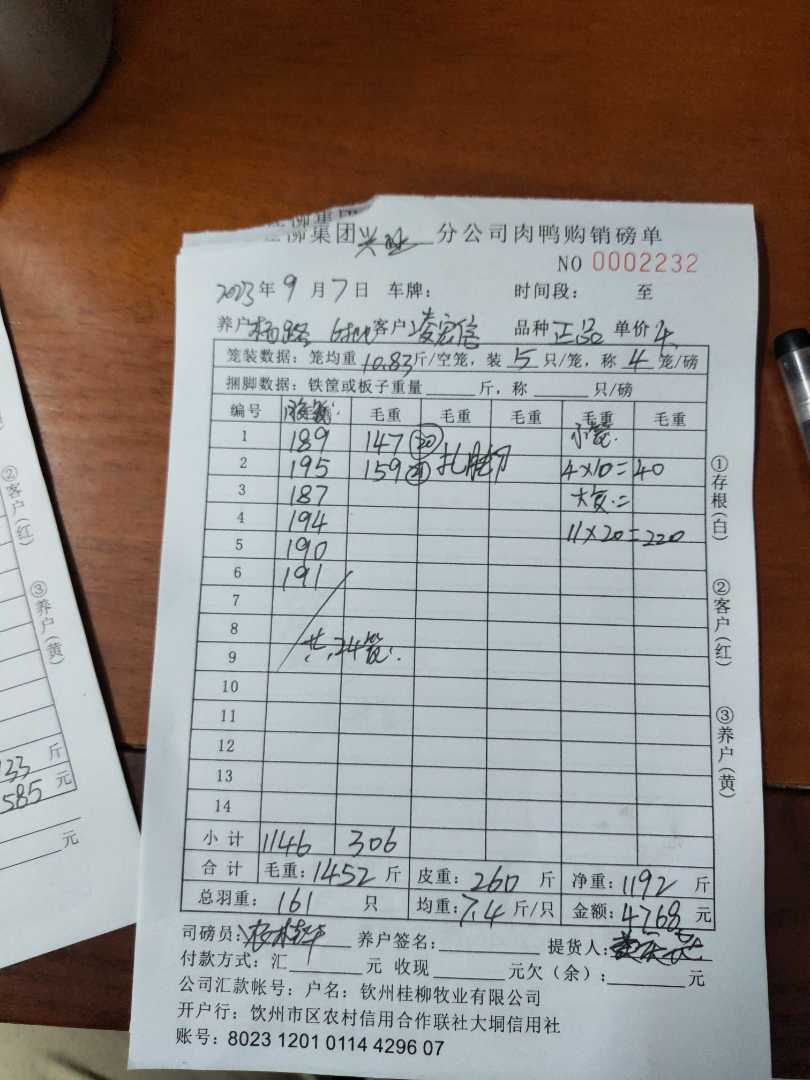 柳集团
柳集团兴业分公司肉鸭购销磅单
NO 0002232
2023年9月7日 车牌: 时间段: 至
养户: 客户:凌宏信 品种正品 单价4
笼装数据:笼均重10.83斤/空笼,装5只/笼,称4笼/磅
捆脚数据:铁筐或板子重量 斤,称 只/磅
编号 毛重 毛重 毛重 毛重 毛重
1 189 147 20
2 195 159 扎脚 4×10=40
3 187
4 194 11×20=220
5 190
6 191
7
8 共:24笼.
9
10
11
12
13
14
小计 1146 306
合计 毛重:1452斤 皮重:260斤 净重:1192斤
总羽重:161只 均重:7.4斤/只 金额:4768元
司磅员: 养户签名: 提货人:
付款方式:汇 元 收现 元欠(余): 元
公司汇款帐号:户名:钦州桂柳牧业有限公司
开户行:饮州市区农村信用合作联社大垌信用社
账号:8023 1201 0114 4296 07
①存根(白)
②客户(红)
③养户(黄)
②客户(红)
③养户(黄)
33斤
585元
元